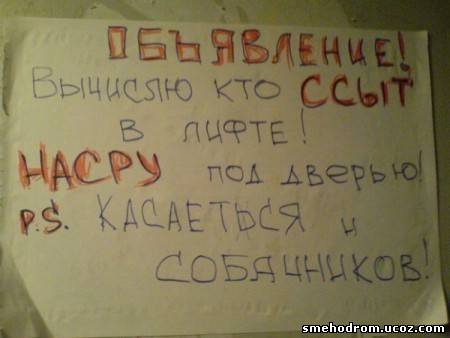 ОБЪЯВЛЕНИЕ!
ВЫЧИСЛЮ КТО ССЫТ
В ЛИФТЕ!
НАСРУ ПОД ДВЕРЬЮ!
P.S. КАСАЕТЬСЯ И
СОБАЧНИКОВ!
smehodrom.ucoz.com